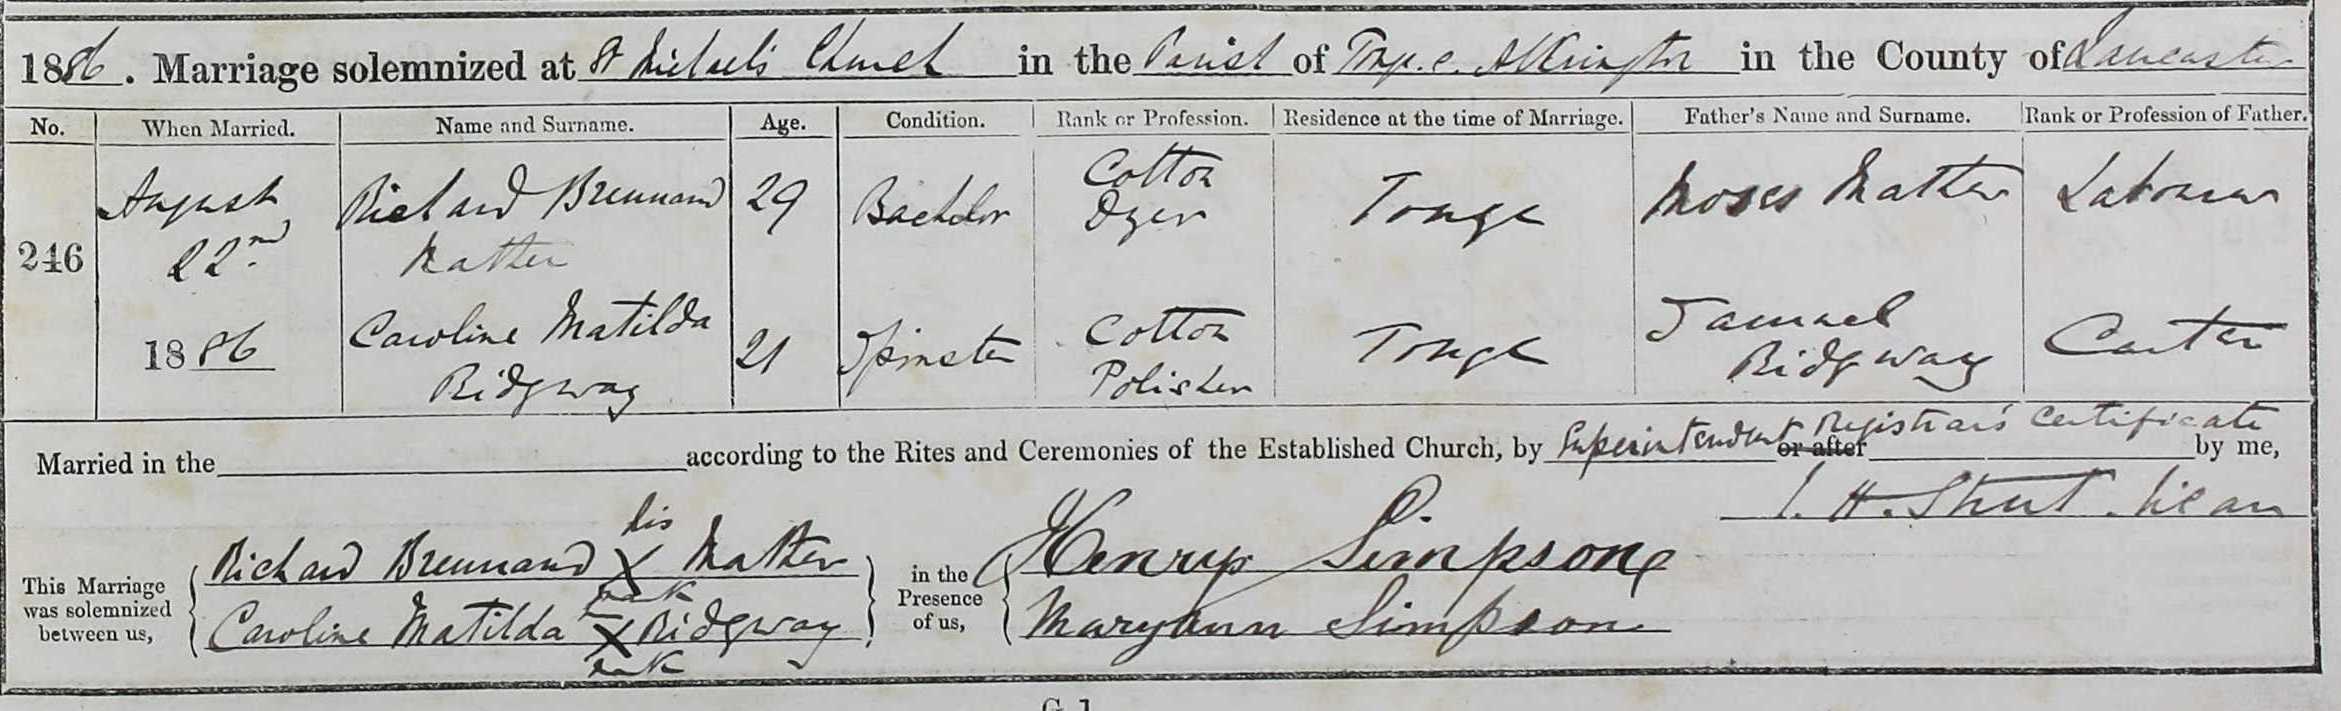 1886. Marriage solemnized at St Michael's Church in the Parish of Tonge c. Alkrington in the County of Lancaster
No. When Married. Name and Surname. Age. Condition. Rank or Profession. Residence at the time of Marriage. Father's Name and Surname. Rank or Profession of Father.
246 August 22nd 1886
Richard Brennand Mather 29 Bachelor Cotton Dyer Tonge Moses Mather Labourer
Caroline Matilda Ridgway 21 Spinster Cotton Polisher Tonge Samuel Ridgway Carter
Married in the according to the Rites and Ceremonies of the Established Church, by Superintendent Registrar's Certificate or after by me,
Richard Brennand his X mark Mather
Caroline Matilda X mark Ridgway
This Marriage was solemnized between us,
in the Presence of us,
Henry Simpson
Maryann Simpson
G 1